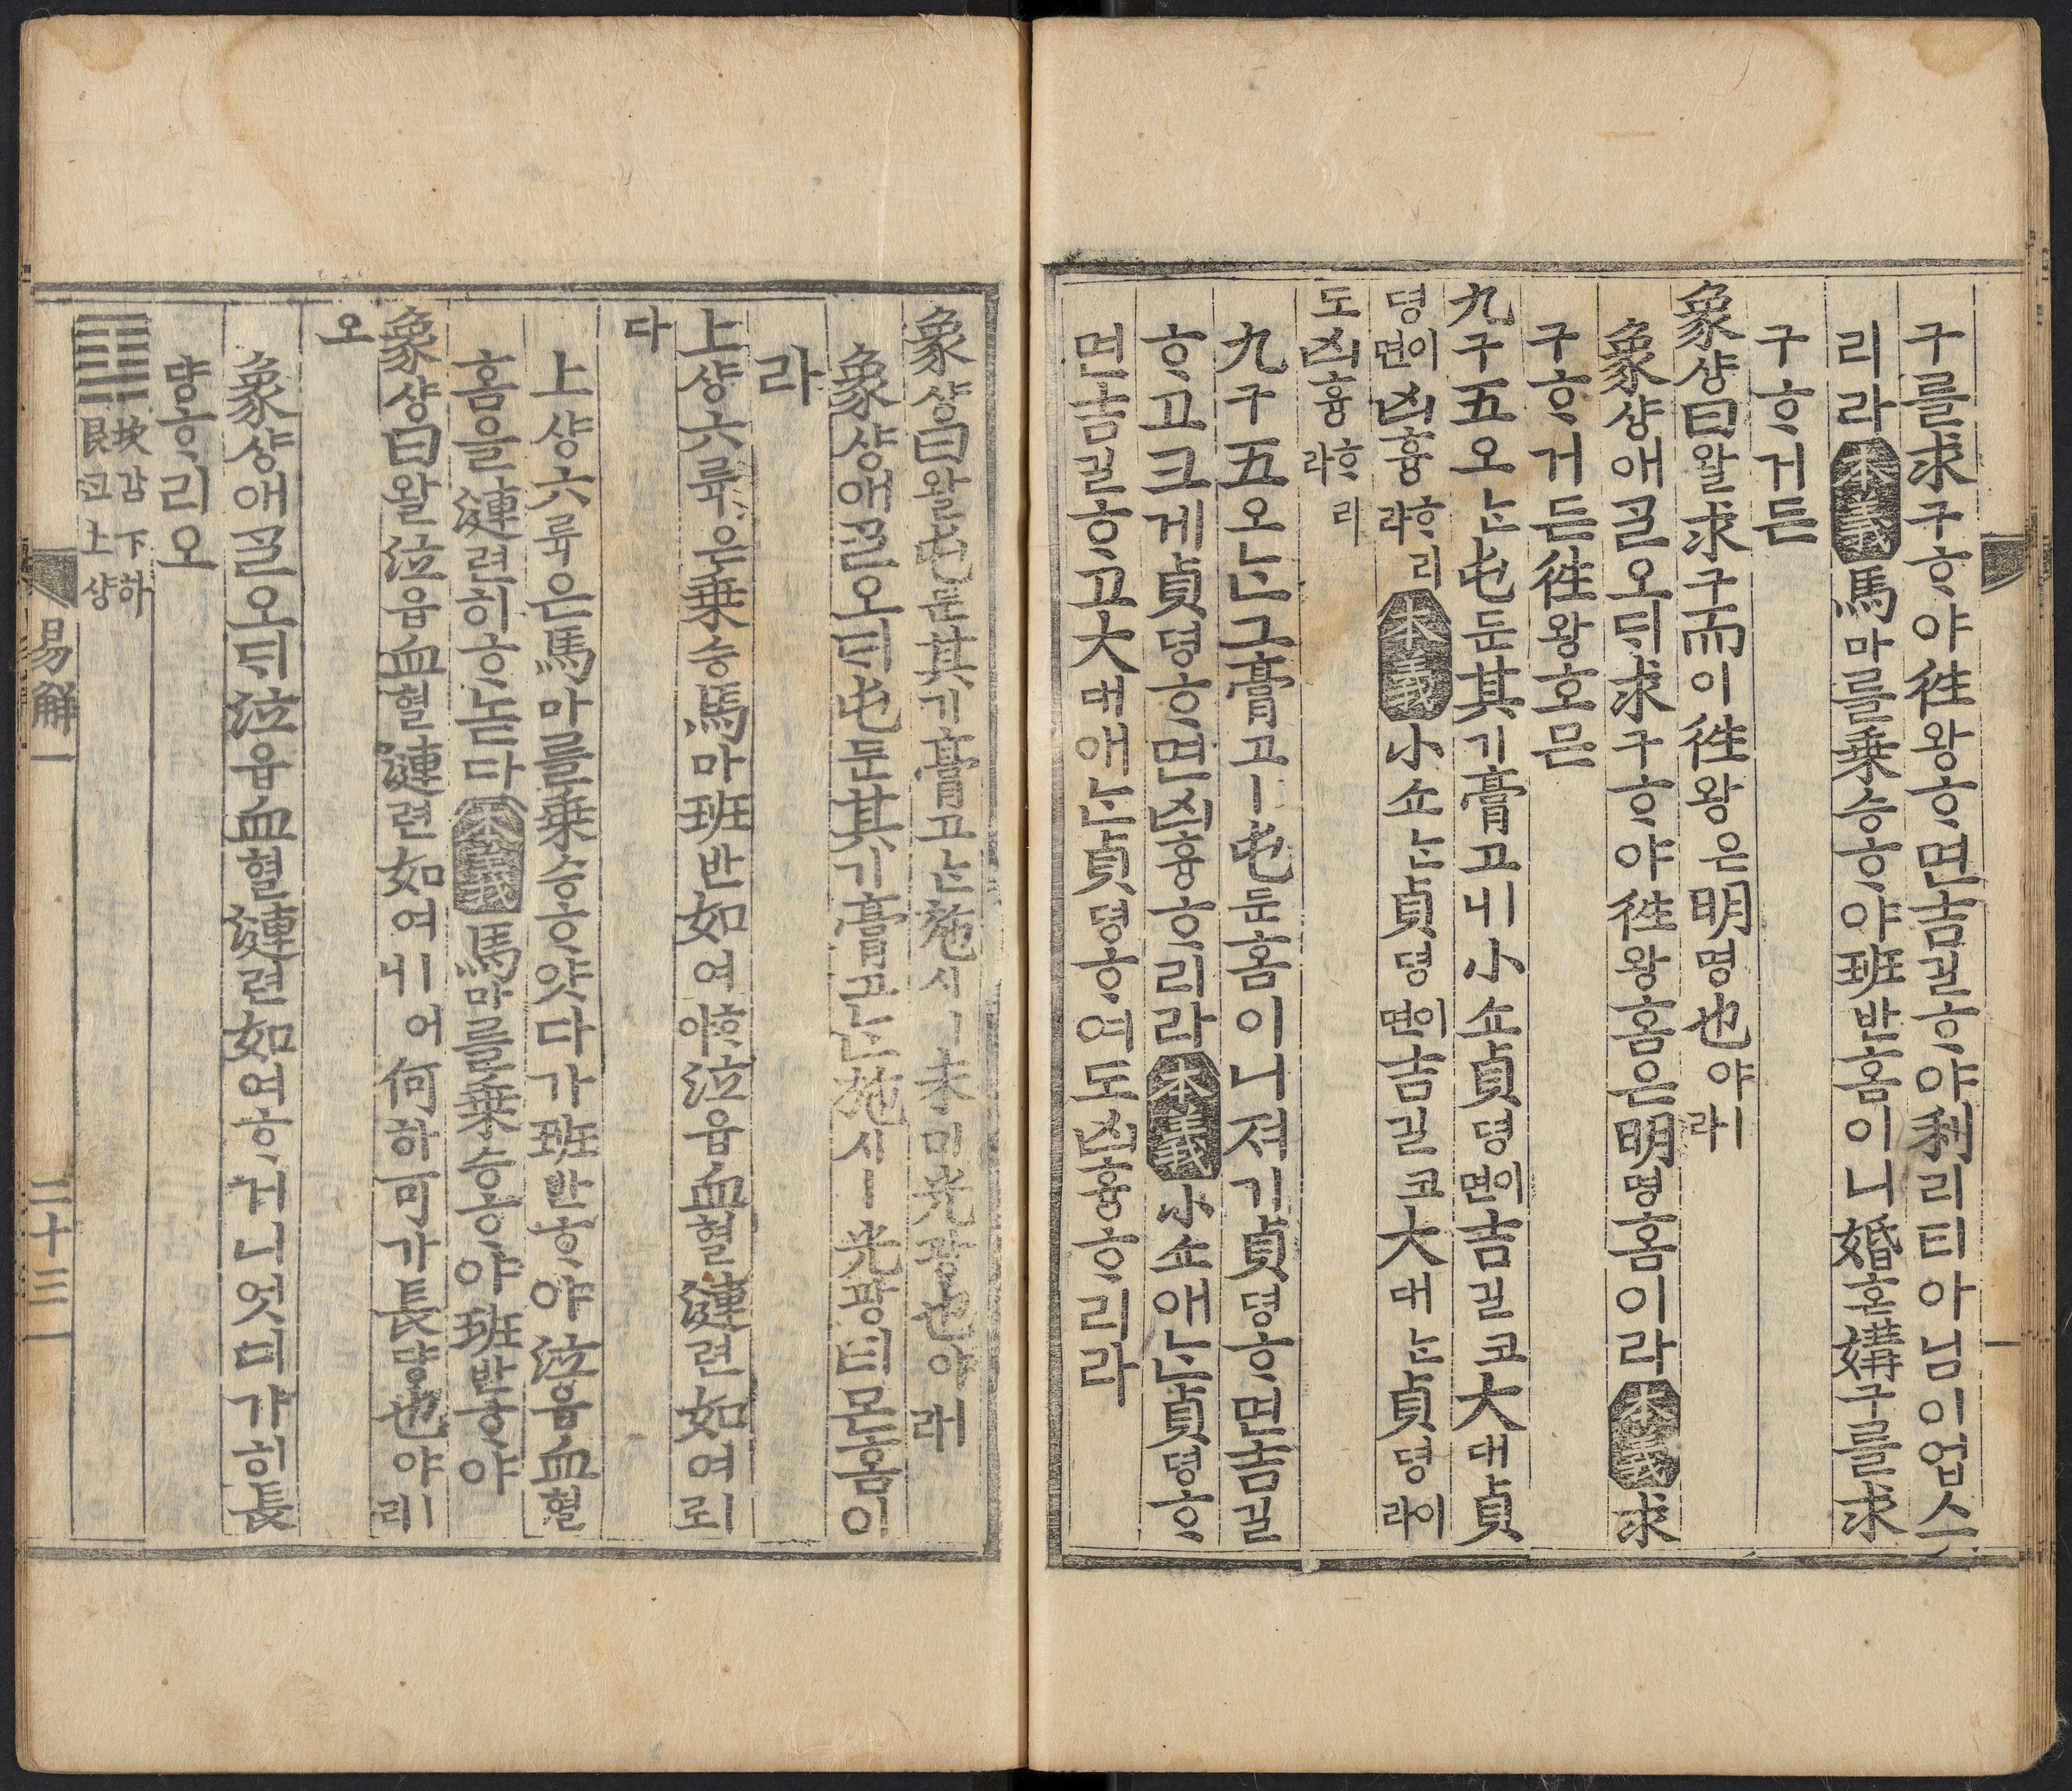 구를求구ᄒᆞ야徃왕ᄒᆞ면吉길ᄒᆞ야利리티아님이업스
리라本義馬마를乘승ᄒᆞ야班반홈이니婚혼媾구를求
구ᄒᆞ거든
象샹曰왈求구而이徃왕은明명也야ㅣ라
象샹애ᄀᆞᆯ오ᄃᆡ求구ᄒᆞ야徃왕홈은明명홈이라本義求
구ᄒᆞ거든徃왕호믄
九구五오ᄂᆞᆫ屯둔其기膏고ㅣ니小쇼貞뎡이면吉길코大대貞
뎡이면凶흉ᄒᆞ리라本義小쇼ᄂᆞᆫ貞뎡이면吉길코大대ᄂᆞᆫ貞뎡이라
도凶흉ᄒᆞ리라
九구五오ᄂᆞᆫ그膏고ㅣ屯둔홈이니져기貞뎡ᄒᆞ면吉길
ᄒᆞ고크게貞뎡ᄒᆞ면凶흉ᄒᆞ리라本義小쇼애ᄂᆞᆫ貞뎡ᄒᆞ
면吉길ᄒᆞ고大대애ᄂᆞᆫ貞뎡ᄒᆞ여도凶흉ᄒᆞ리라
象샹曰왈屯둔其기膏고ᄂᆞᆫ施시ㅣ未미光광也야ㅣ라
象샹애ᄀᆞᆯ오ᄃᆡ屯둔其기膏고ᄂᆞᆫ施시ㅣ光광티몯홈이
라
上샹六륙은乘승馬마班반如여ᄒᆞ야泣읍血혈漣련如여ㅣ로
다
上샹六륙은馬마를乘승ᄒᆞ얏다가班반ᄒᆞ야泣읍血혈
홈을漣련히ᄒᆞ놋다本義馬마를乘승ᄒᆞ야班반ᄒᆞ야
象샹曰왈泣읍血혈漣련如여ㅣ니어何하可가長댱也야ㅣ리
오
象샹애ᄀᆞᆯ오ᄃᆡ泣읍血혈漣련如여ᄒᆞ거니엇디可가히長
댱ᄒᆞ리오
䷃坎감下하艮간上샹
易解一 二十三